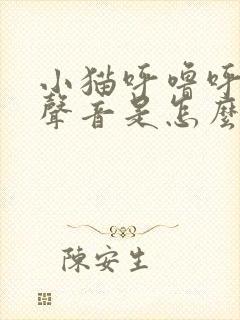 小猫呼噜呼
聲音是怎麼
陳安生